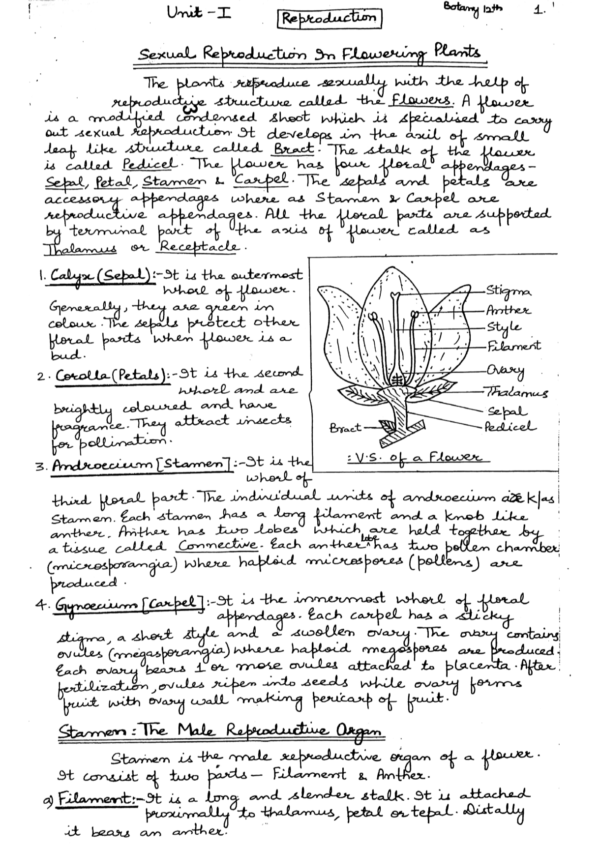 Unit - I
Reproduction
Botany 12th
1.
Sexual Reproduction In Flowering Plants
The plants reproduce sexually with the help of
reproductive structure called the Flowers. A flower
is a modified condensed shoot which is specialised to carry
out sexual reproduction. It develops in the axil of small
leaf like structure called Bract. The stalk of the flower
is called Pedicel. The flower has four floral appendages-
Sepal, Petal, Stamen & Carpel. The sepals and petals are
accessory appendages where as Stamen & Carpel are
reproductive appendages. All the floral parts are supported
by terminal part of the axis of flower called as
Thalamus or Receptacle.
1. Calyx (Sepal):- It is the outermost
whorl of flower.
Generally, they are green in
colour. The sepals protect other
floral parts when flower is a
bud.
2. Corolla (Petals):- It is the second
whorl and are
brightly coloured and have
fragrance. They attract insects
for pollination.
Stigma
Anther
Style
Filament
Ovary
Thalamus
Sepal
Pedicel
Bract
: V.S. of a Flower
3. Androecium [Stamen]:- It is the
whorl of
third floral part. The individual units of androecium are k/as
Stamen. Each stamen has a long filament and a knob like
anther. Anther has two lobes which are held together by
a tissue called Connective. Each anther lobe has two pollen chamber
(microsporangia) where haploid microspores (pollens) are
produced.
4. Gynoecium [Carpel]:- It is the innermost whorl of floral
appendages. Each carpel has a sticky
stigma, a short style and a swollen ovary. The ovary contains
ovules (megasporangia) where haploid megospores are produced.
Each ovary bears 1 or more ovules attached to placenta. After
fertilization, ovules ripen into seeds while ovary forms
fruit with ovary wall making pericarp of fruit.
Stamen: The Male Reproductive Organ
Stamen is the male reproductive organ of a flower.
It consist of two parts - Filament & Anther.
a) Filament:- It is a long and slender stalk. It is attached
proximally to thalamus, petal or tepal. Distally
it bears an anther.